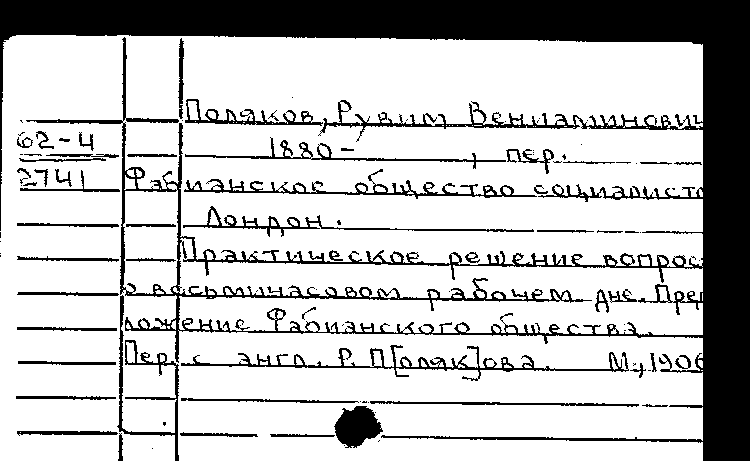 Поляков, Рувим Вениаминович
62-4
1880- , пер.
2741 Фабианское общество социалисто
Лондон.
Практическое решение вопрос
о восьмичасовом рабочем дне. Пред
ложение Фабианского общества.
Пер. с англ. Р. П[оляк]ова. М., 1906